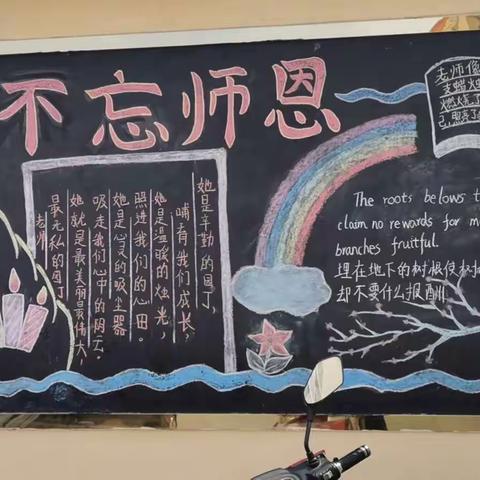 不忘师恩
她是辛勤的园丁,
哺育我们成长,
她是温暖的烛光,
照进我们的心田。
她是心灵的吸尘器
吸走我们心中的阴云。
她就是最美丽最伟大,
最无私的园丁
老师
老师像
支蜡烛
燃烧了
己,照亮了
The roots belows
claim no rewards for
branches fruitful.
埋在地下的树根使树
却不要什么报酬